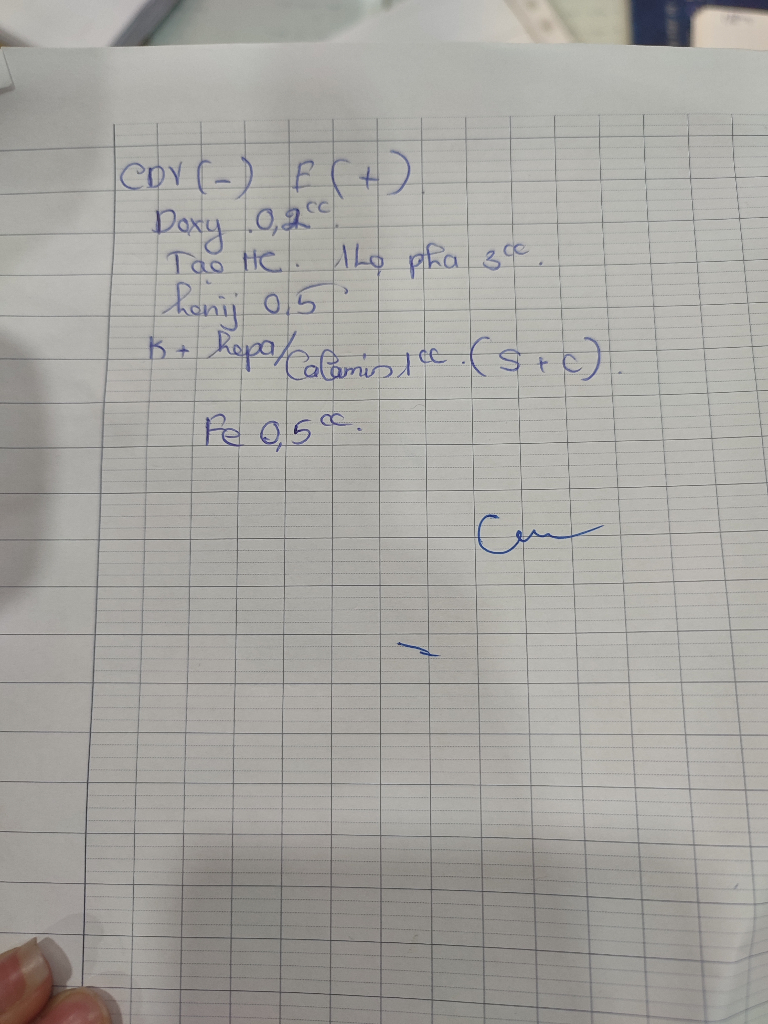 CDV (-) E (+)
Doxy 0,2cc.
Tạo HC. 1 Lọ pha 3cc.
0,5
K + Hepa/Calamin 1cc. (S + C).
Fe 0,5cc.